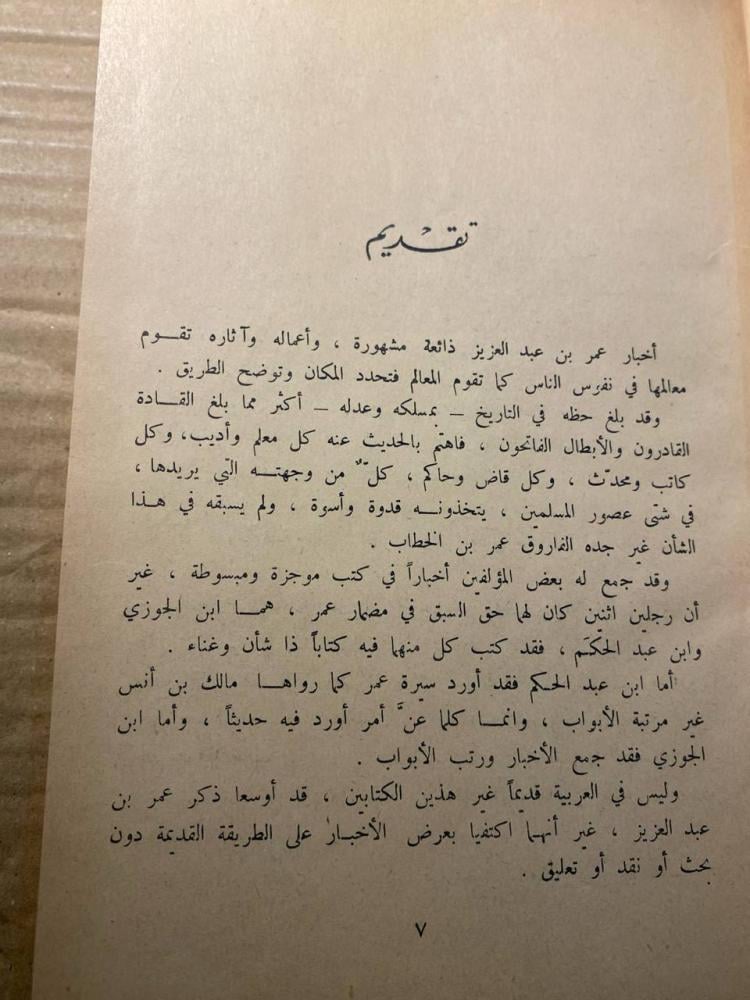 تقديم
أخبار عمر بن عبد العزيز ذائعة مشهورة ، وأعماله وآثاره تقوم
معالمها في نفوس الناس كما تقوم المعالم فتحدد المكان وتوضح الطريق .
وقد بلغ حظه في التاريخ – بمسلكه وعدله – أكثر مما بلغ القادة
القادرون والأبطال الفاتحون ، فاهتم بالحديث عنه كل معلم وأديب، وكل
كاتب ومحدّث ، وكل قاض وحاكم ، كلٌّ من وجهته التي يريدها ،
في شتى عصور المسلمين ، يتخذونه قدوة وأسوة ، ولم يسبقه في هذا
الشأن غير جده الفاروق عمر بن الخطاب .
وقد جمع له بعض المؤلفين أخباراً في كتب موجزة ومبسوطة ، غير
أن رجلين اثنين كان لهما حق السبق في مضمار عمر ، هما ابن الجوزي
وابن عبد الحكَم ، فقد كتب كل منهما فيه كتاباً ذا شأن وغناء .
أما ابن عبد الحكم فقد أورد سيرة عمر كما رواها مالك بن أنس
غير مرتبة الأبواب ، وانما كلما عنَّ أمر أورد فيه حديثاً ، وأما ابن
الجوزي فقد جمع الأخبار ورتب الأبواب .
وليس في العربية قديماً غير هذين الكتابين ، قد أوسعا ذكر عمر بن
عبد العزيز ، غير أنهما اكتفيا بعرض الأخبار على الطريقة القديمة دون
بحث أو نقد أو تعليق .
٧